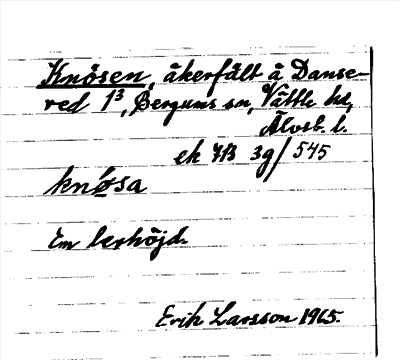 Knösen, åkerfält å Danse-
red 1³, Bergums sn, Vättle hd,
Älvsb. l.
ek 7B 3g/545
knø̀sa
En lerhöjd.
Erik Larsson 1965.